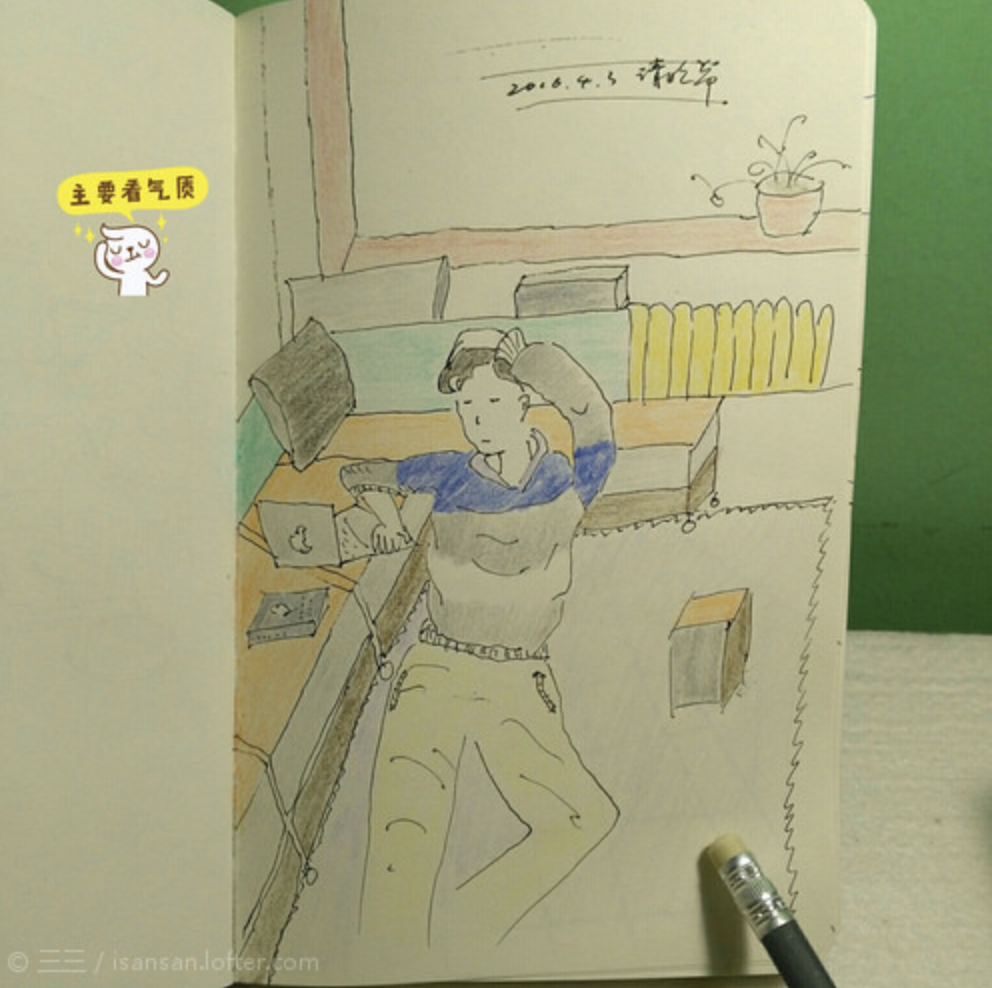 2016.4.3 清明节
主要看气质
© 三三 / isansan.lofter.com